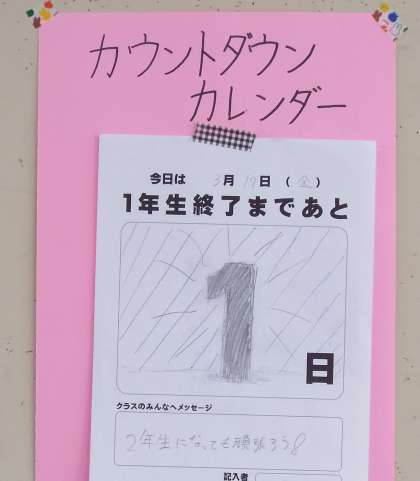 カウントダウン
カレンダー
今日は 3月 19日 (金)
1年生終了まであと
1
日
クラスのみんなへメッセージ
2年生になっても頑張ろう!
記入者